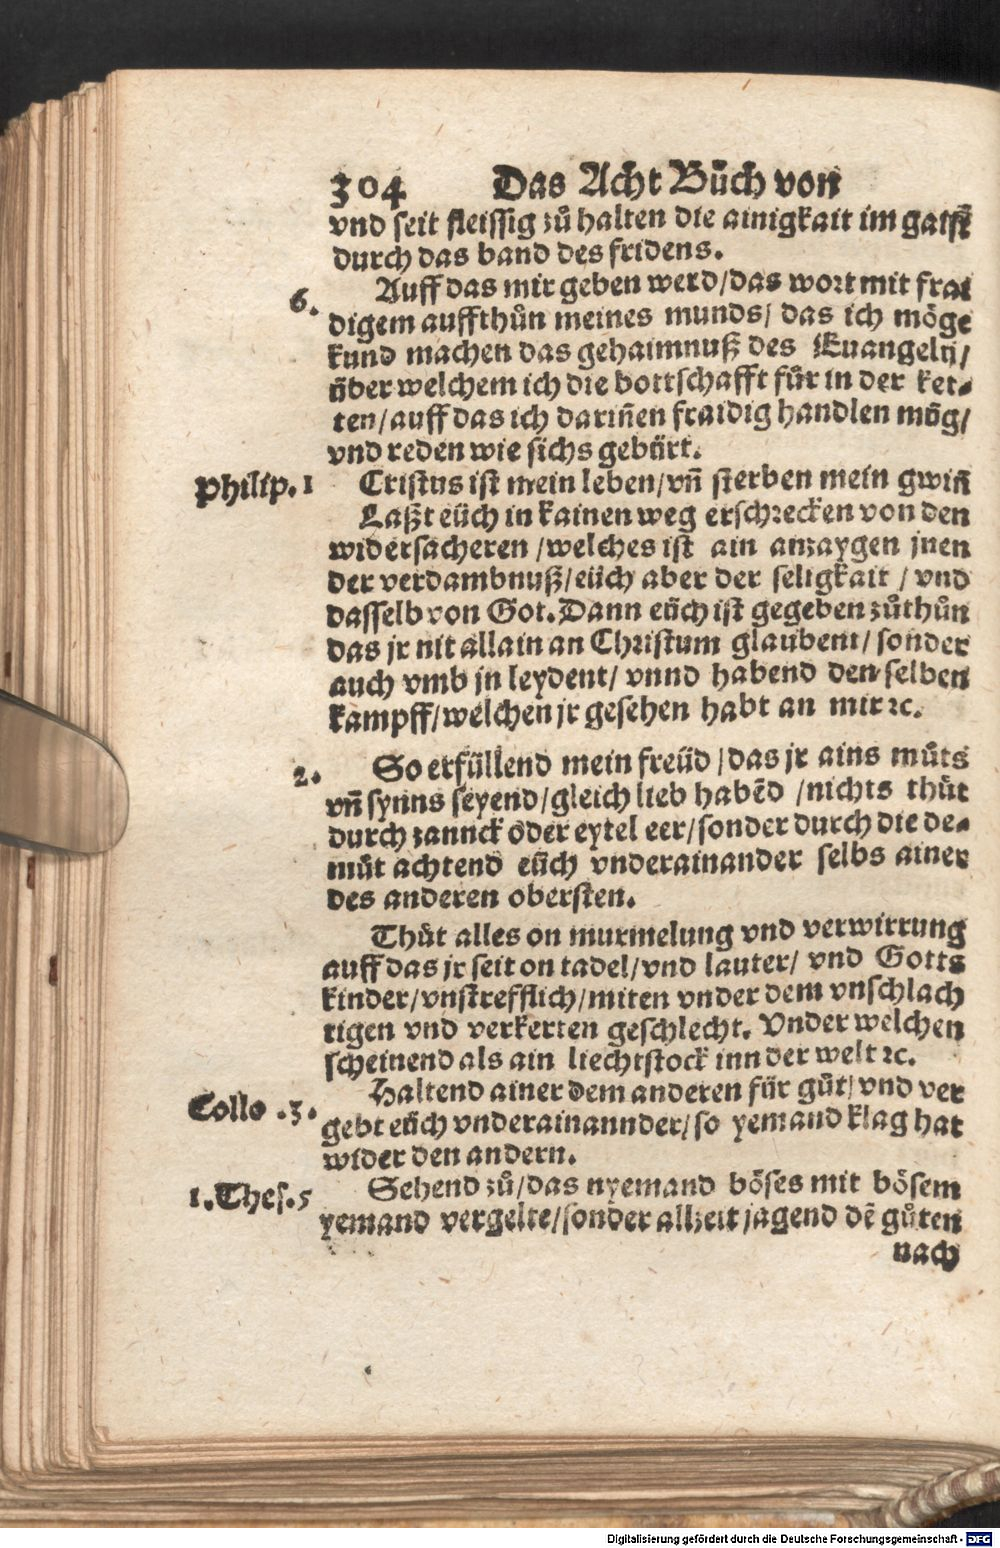 304 Das Acht Bůch von
vnd seit fleissig zů halten die ainigkait im gaist
durch das band des fridens.
6. Auff das mir geben werd/das wort mit frai
digem auffthůn meines munds/ das ich möge
kund machen das gehaimnuß des Euangelij/
über welchem ich die bottschafft für in der ket-
ten/auff das ich dariñen fraidig handlen mög/
vnd reden wie sichs gebürt.
Philip. 1 Cristus ist mein leben/vñ sterben mein gwiñ
Laßt eüch in kainen weg erschrecken von den
widersacheren /welches ist ain anzaygen jnen
der verdambnuß/eüch aber der seligkait / vnd
dasselb von Got. Dann eüch ist gegeben zůthůn
das jr nit allain an Christum glaubent/ sonder
auch vmb jn leydent/ vnnd habend den selben
kampff/welchen jr gesehen habt an mir ꝛc.
2. So erfüllend mein freüd /das jr ains můts
vñ synns seyend/gleich lieb habẽd /nichts thůt
durch zannck oder eytel eer/sonder durch die de-
můt achtend eüch vnderainander selbs ainer
des anderen obersten.
Thůt alles on murmelung vnd verwirrung
auff das jr seit on tadel/vnd lauter/ vnd Gotts
kinder/vnstrefflich/miten vnder dem vnschlach
tigen vnd verkerten geschlecht. Vnder welchen
scheinend als ain liechtstock inn der welt ꝛc.
Haltend ainer dem anderen für gůt/ vnd ver
Collo .3. gebt eüch vnderainannder/so yemand klag hat
wider den andern.
1. Thes. 5 Sehend zů/das nyemand böses mit bösem
yemand vergelte/sonder allzeit jagend dẽ gůten
nach
Digitalisierung gefördert durch die Deutsche Forschungsgemeinschaft - DFG